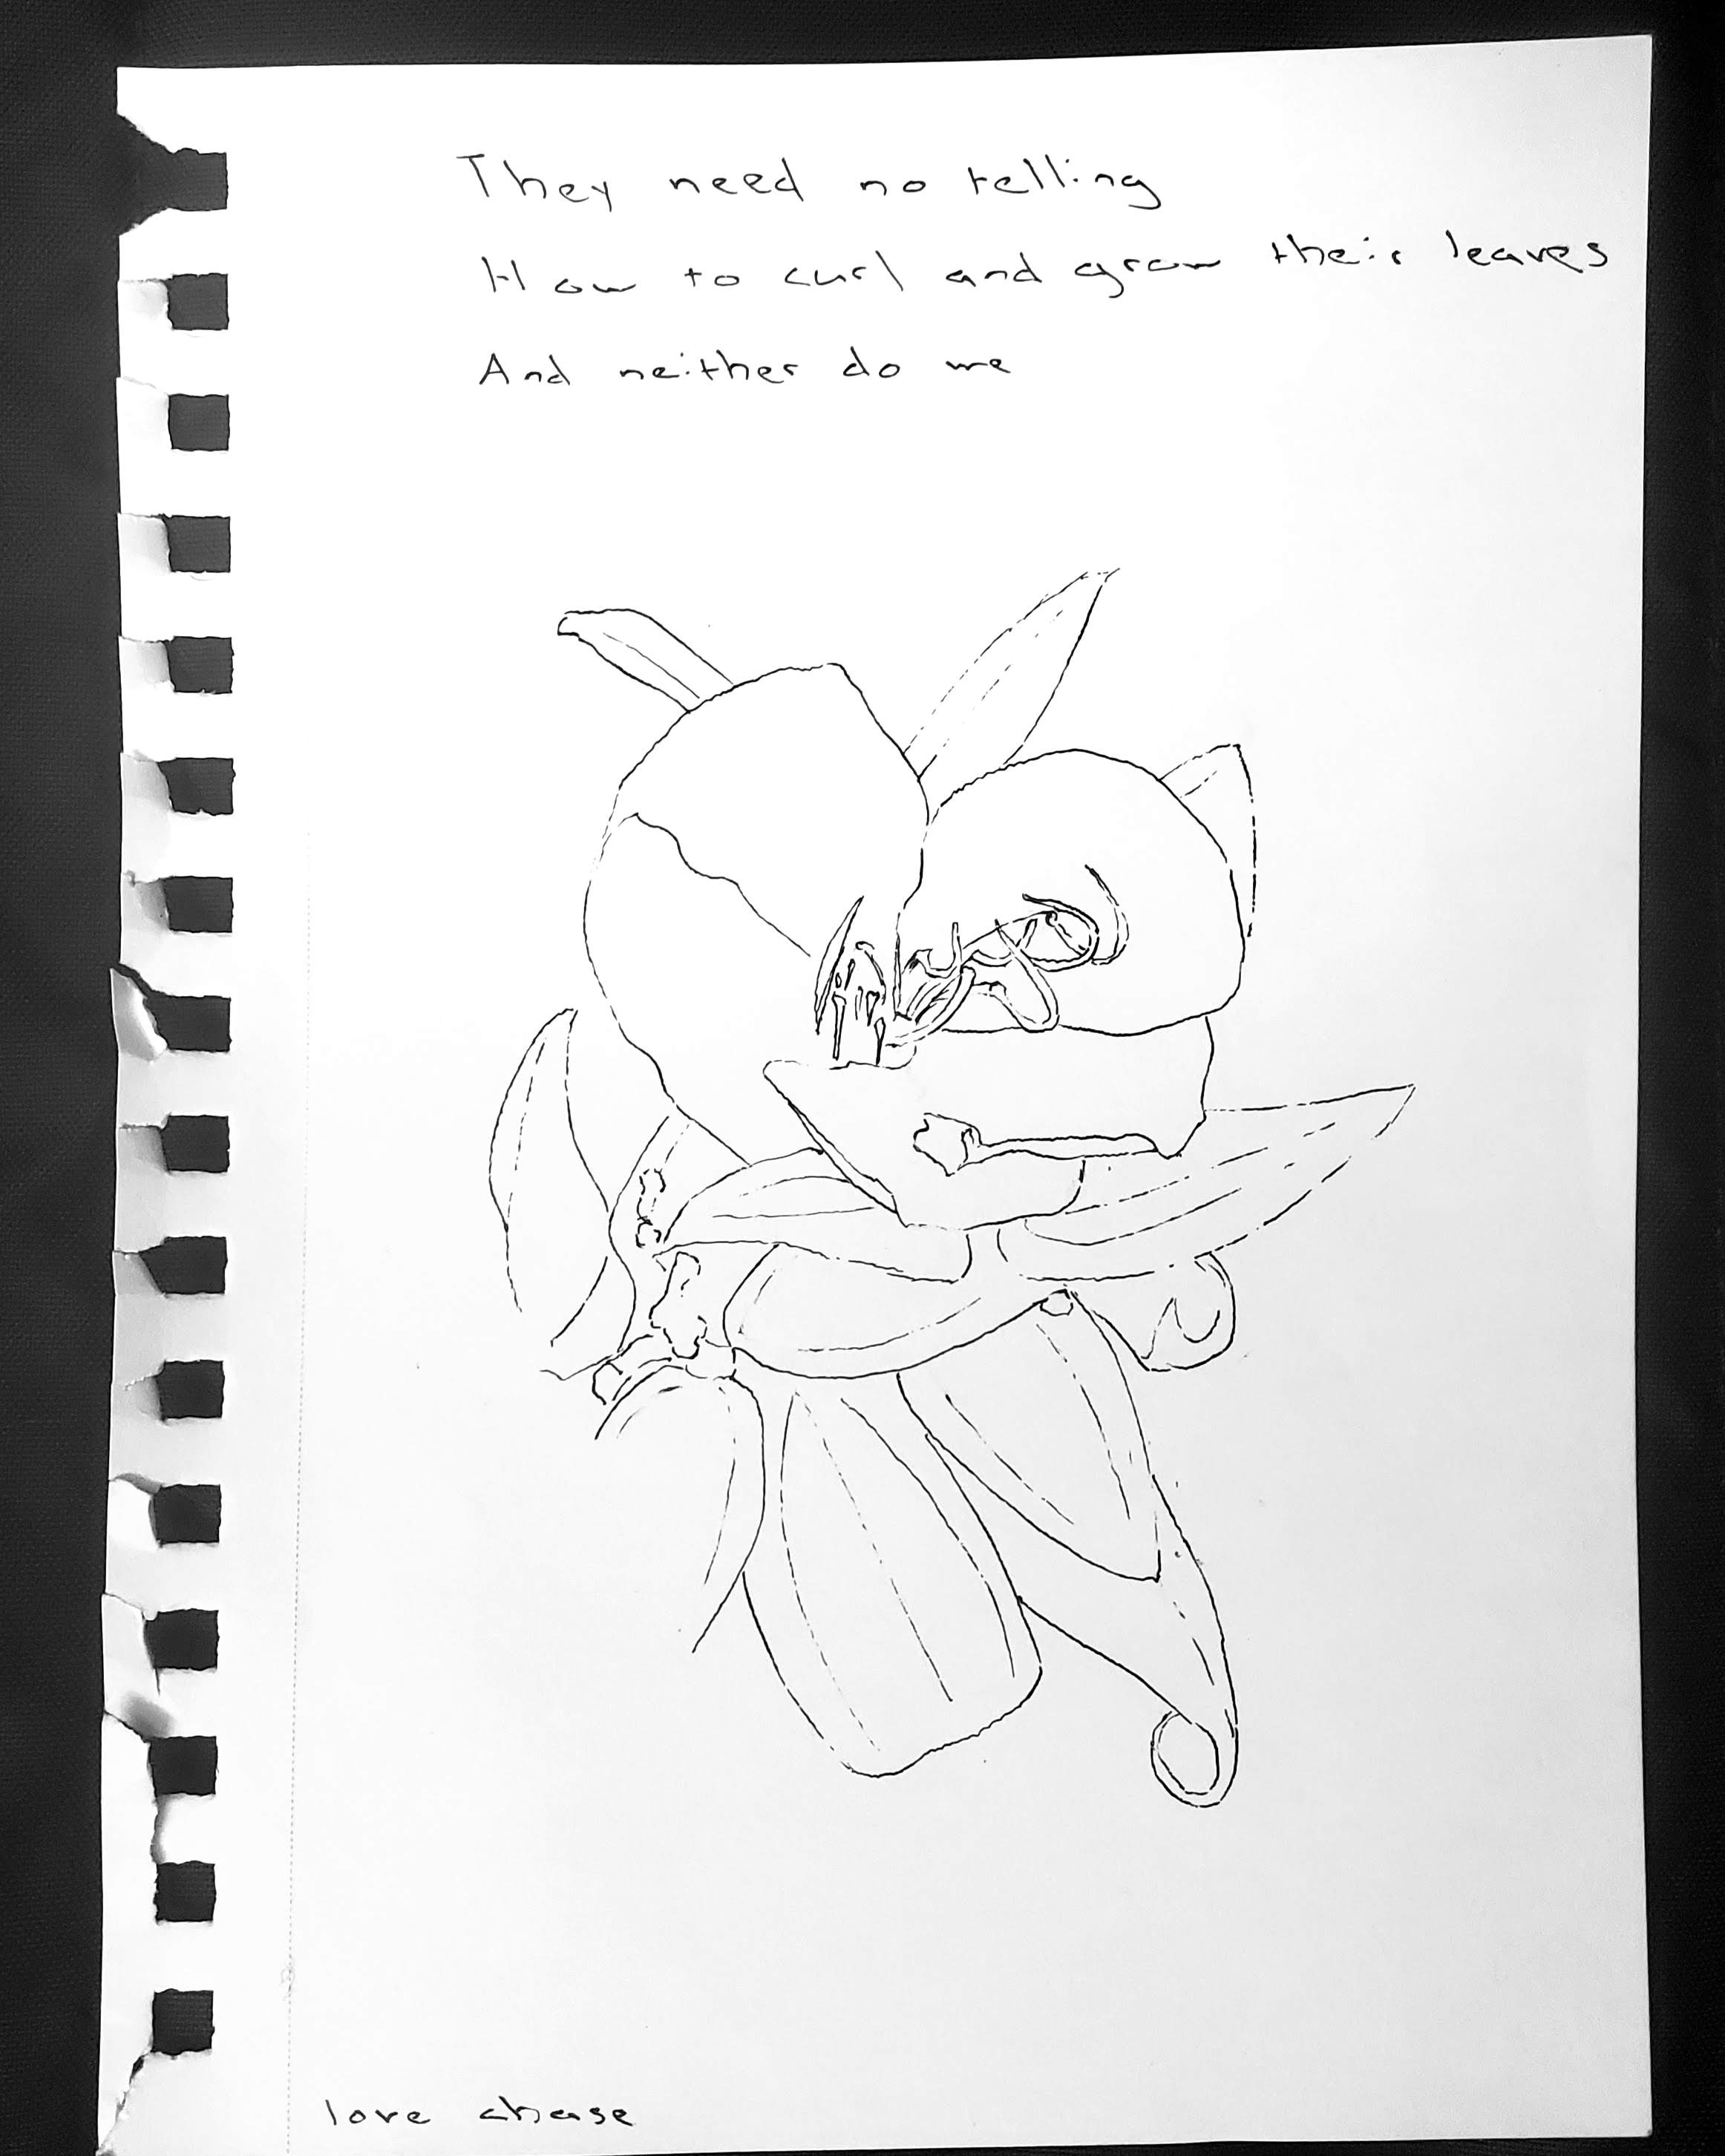 They need no telling
How to curl and grow their leaves
And neither do we
love chase